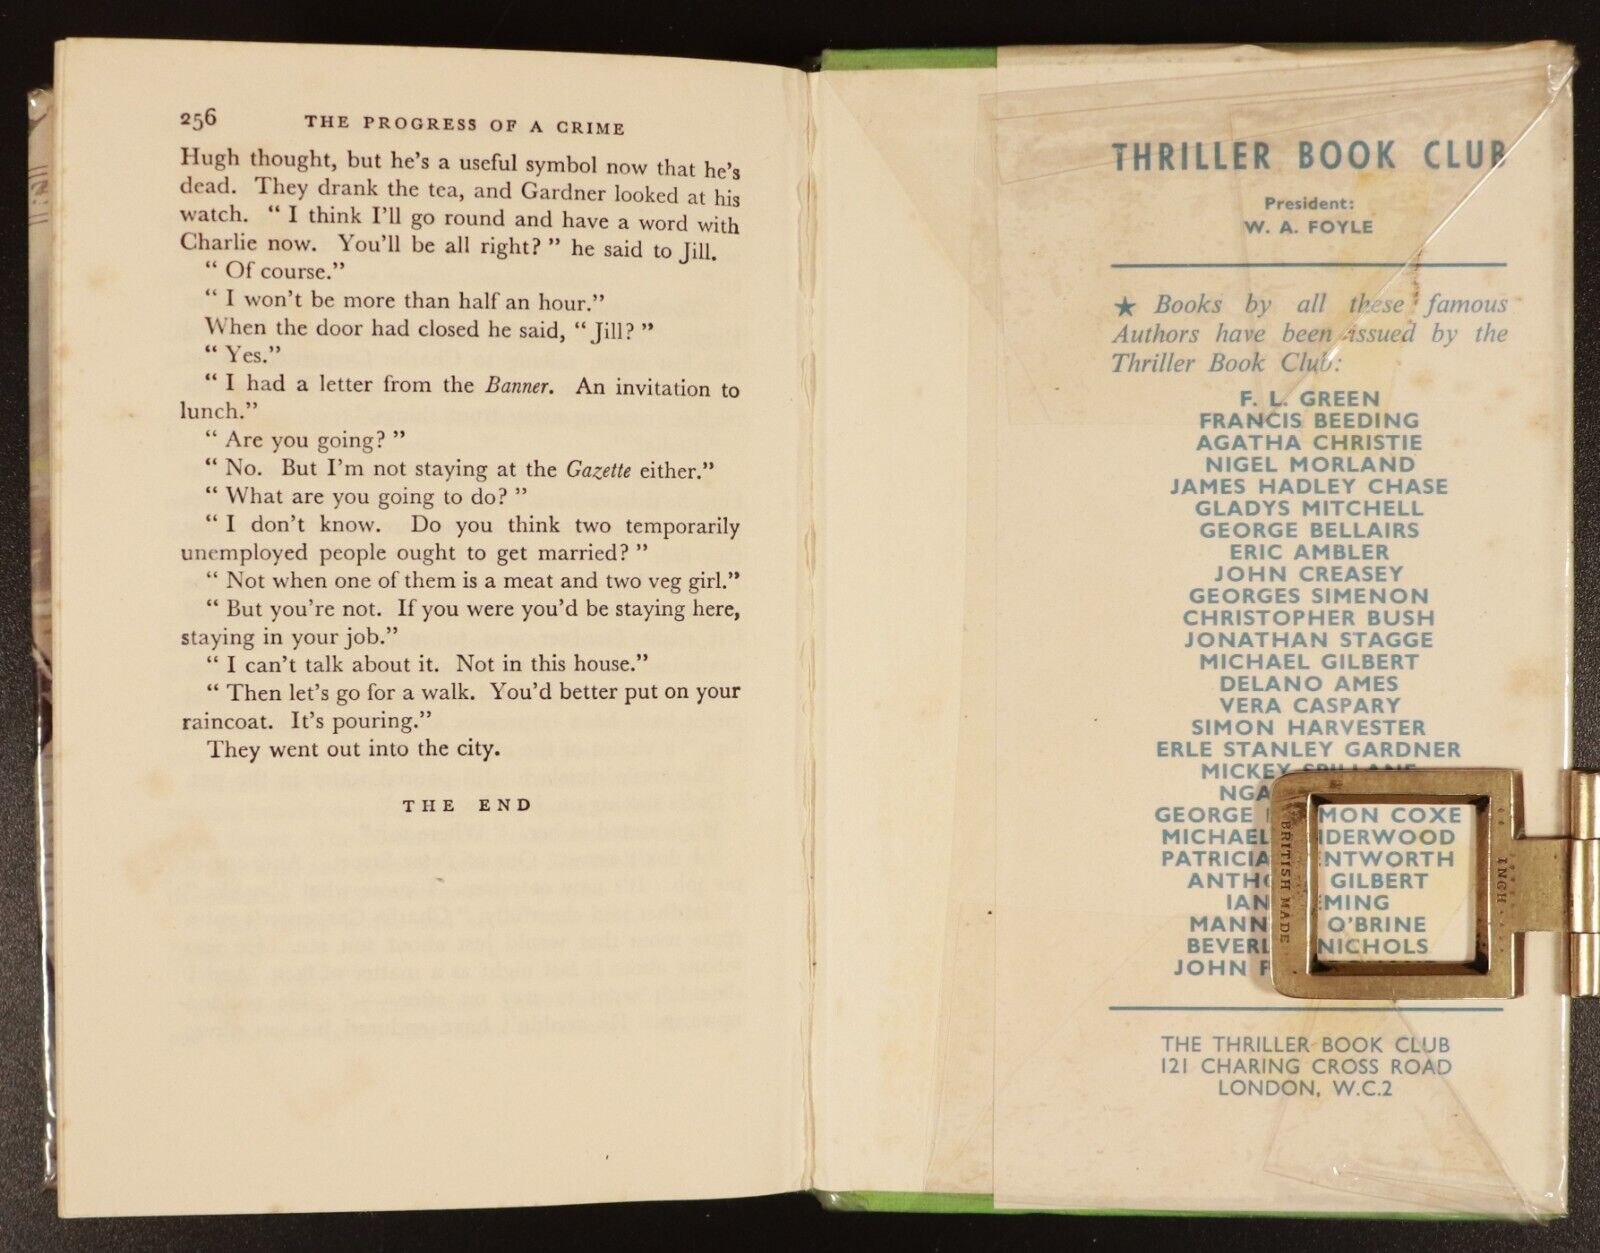 256 THE PROGRESS OF A CRIME
Hugh thought, but he's a useful symbol now that he's
dead. They drank the tea, and Gardner looked at his
watch. “ I think I'll go round and have a word with
Charlie now. You'll be all right? ” he said to Jill.
“ Of course.”
“ I won't be more than half an hour.”
When the door had closed he said, “ Jill? ”
“ Yes.”
“ I had a letter from the Banner. An invitation to
lunch.”
“ Are you going? ”
“ No. But I'm not staying at the Gazette either.”
“ What are you going to do? ”
“ I don't know. Do you think two temporarily
unemployed people ought to get married? ”
“ Not when one of them is a meat and two veg girl.”
“ But you're not. If you were you'd be staying here,
staying in your job.”
“ I can't talk about it. Not in this house.”
“ Then let's go for a walk. You'd better put on your
raincoat. It's pouring.”
They went out into the city.
THE END
THRILLER BOOK CLUB
President:
W. A. FOYLE
★ Books by all these famous
Authors have been issued by the
Thriller Book Club:
F. L. GREEN
FRANCIS BEEDING
AGATHA CHRISTIE
NIGEL MORLAND
JAMES HADLEY CHASE
GLADYS MITCHELL
GEORGE BELLAIRS
ERIC AMBLER
JOHN CREASEY
GEORGES SIMENON
CHRISTOPHER BUSH
JONATHAN STAGGE
MICHAEL GILBERT
DELANO AMES
VERA CASPARY
SIMON HARVESTER
ERLE STANLEY GARDNER
MICKEY SPILLANE
GEORGE COXE
MICHAEL
PATRICIA
GILBERT
IAN
O'BRINE
NICHOLS
JOHN
BRITISH MADE
THE THRILLER BOOK CLUB
121 CHARING CROSS ROAD
LONDON, W.C.2